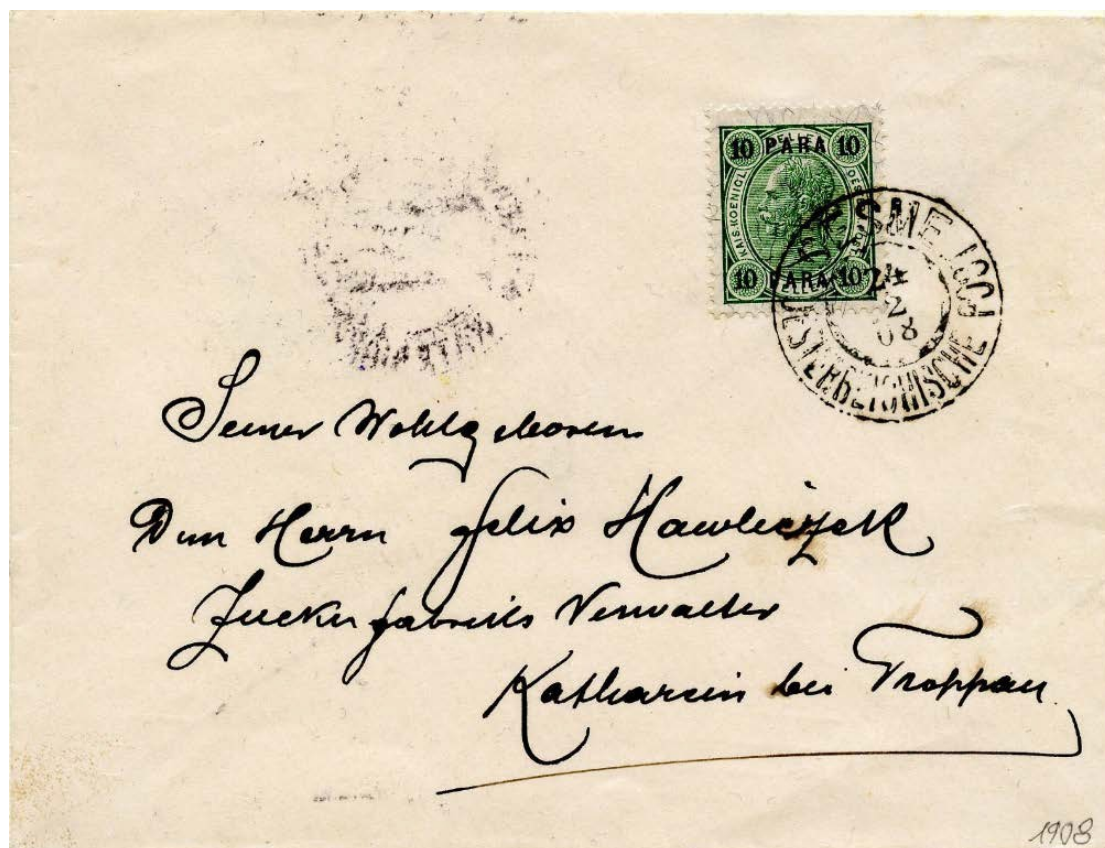 10 PARA 10
KAIS. KOENIGL.
10 PARA 10
24
2
08
OESTERREICHISCHE
Seiner Wohlgeboren
Dem Herrn Felix Hawliczek
Zuckerfabriks Verwalter
Katharein bei Troppau.
1908